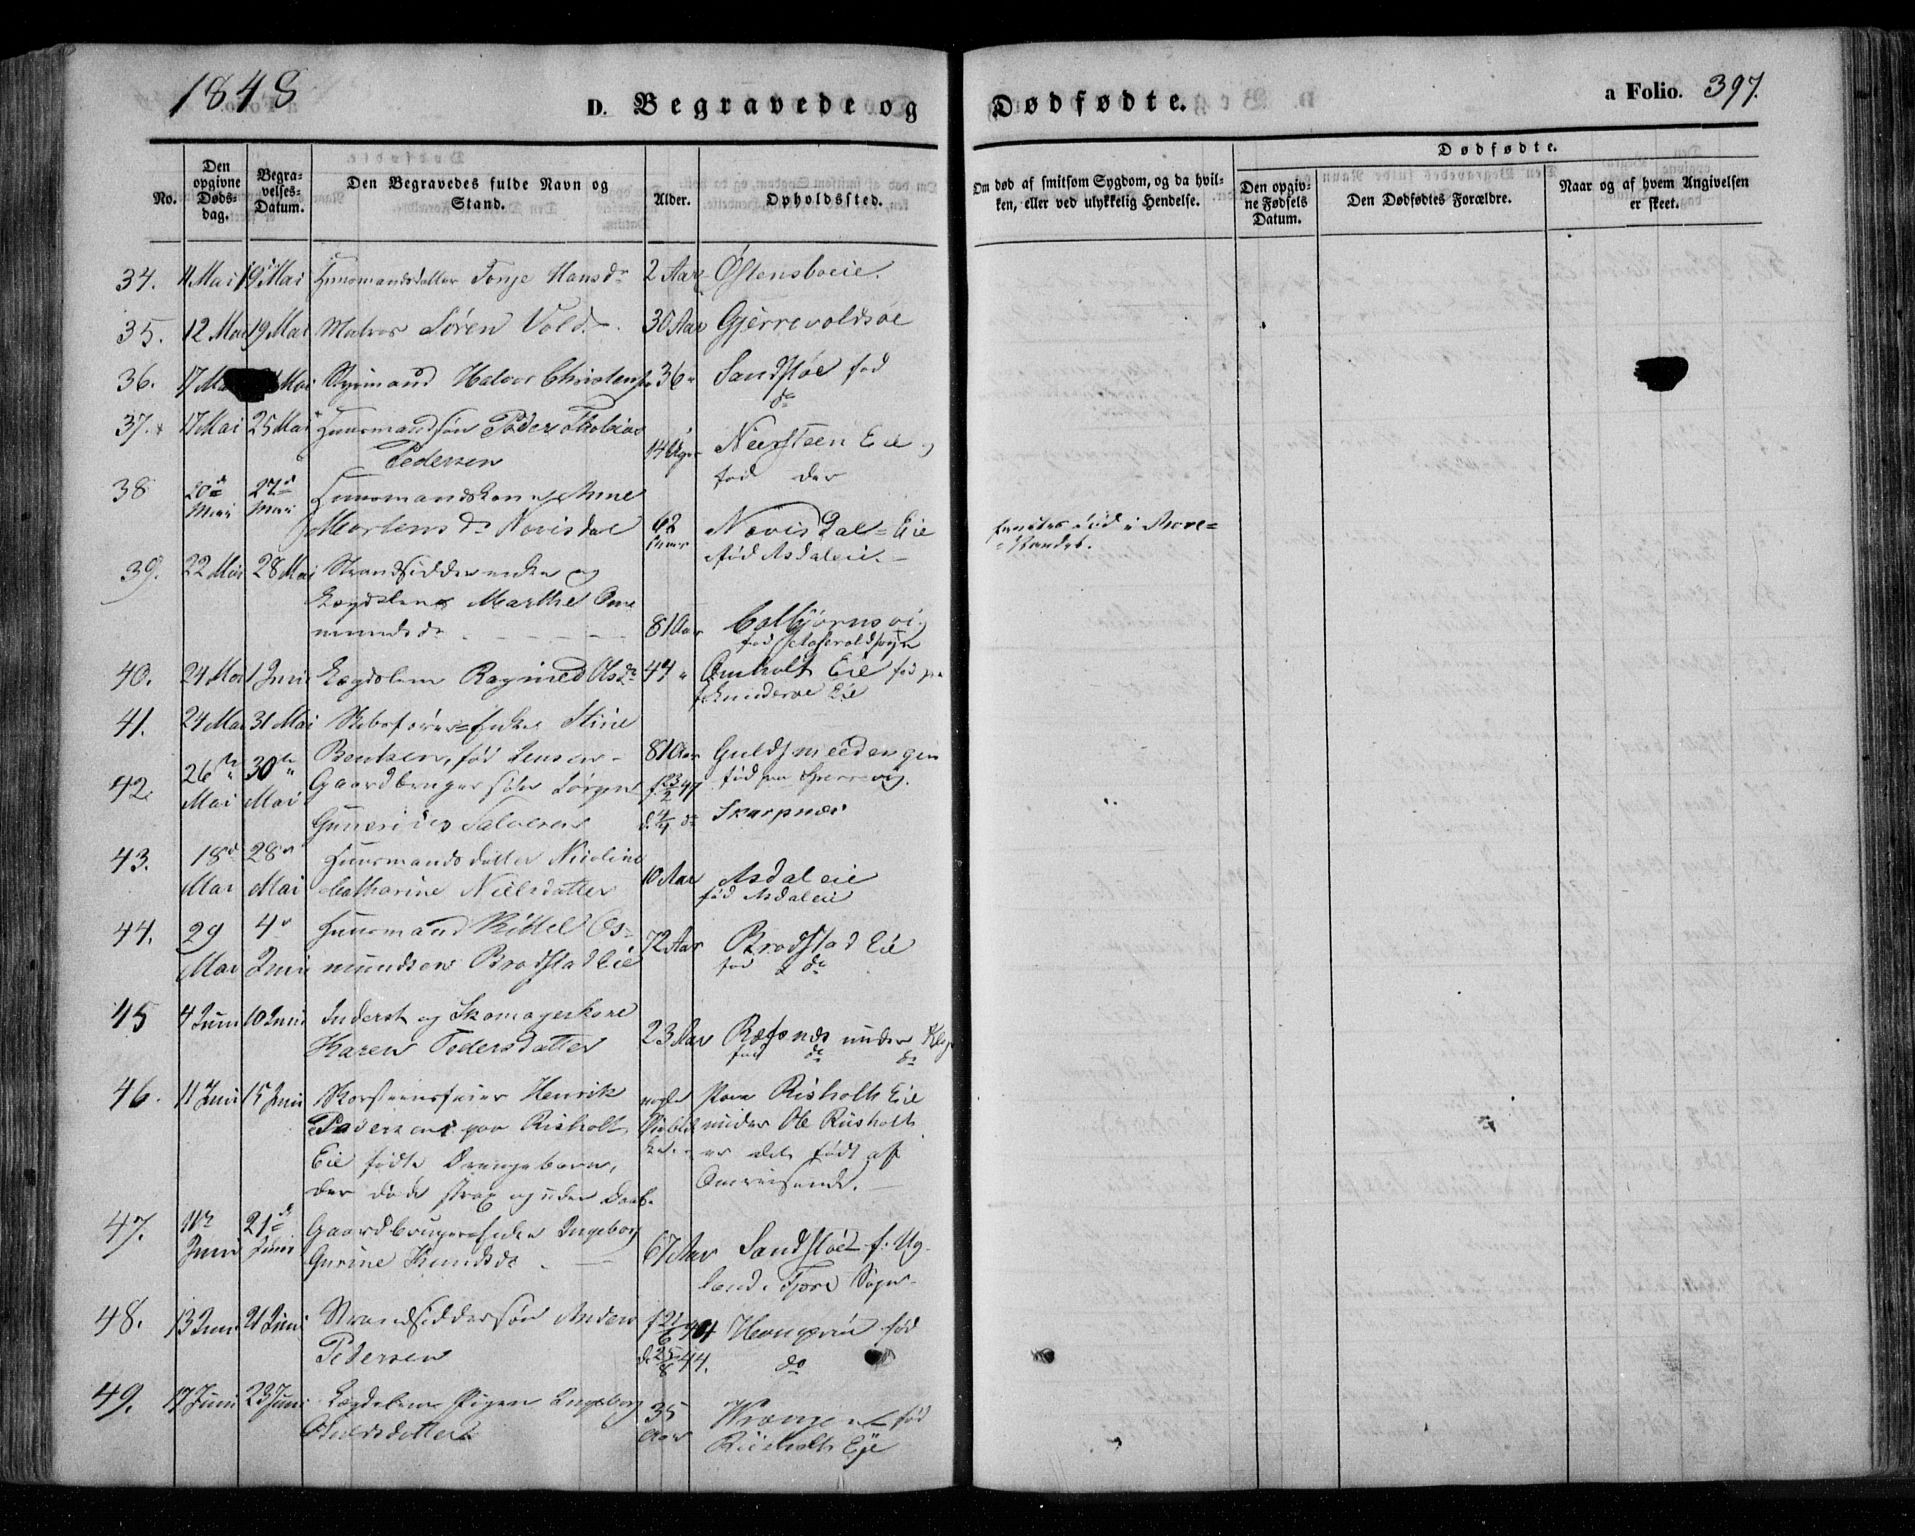 1848
D. Begravede og Dødfødte.
a Folio. 397.
No.
Den opgivne Dødsdag.
Begravelses-Datum.
Den Begravedes fulde Navn og Stand.
Alder.
Opholdssted.
Om død af smitsom Sygdom, og da hvilken, eller ved ulykkelig Hendelse.
Dødfødte.
Den opgivne Fødsels Datum.
Den Dødfødtes Forældre.
Naar og af hvem Angivelsen er skeet.
34. 11 Mai 19 Mai Huusmandsdatter Tonje Hansdr 2 Aar Østensboeie.
35. 12 Mai 19 Mai Matros Søren Vold 30 Aar Gjerrevoldsøe
36. 17 Mai Mai Styrmand Halvor Christens 36 " Sandstøe fød
do
37. 17 Mai 25 Mai Huusmandssøn Peder Thobias
Pedersen 14 Uger Neersteen Eie
fød der
38 20de Mai 27de Mai Huusmandskone Anne
Mortens Dr Novisdal 62 Aar Novisdal Eie
fød Asdaleie
39. 22 Mai 28 Mai Strandsidderenke og
Lægdslem Marthe Om
mundsdr 81 Aar Colbjørnsvig
fød
40. 24 Mai 1 Juni Lægdslem Ragnild Olsdr 44 " Omholt Eie fød paa
Eie
41. 24 Mai 31 Mai Skibsfører-Enke Stine
Bentsen, fød Jensen 81 Aar Guldsmeedengen
fød paa
42. 26 Mai 30 Mai Gaardbrugersøn Jørgen
Salvesen f. 23/2 47 Skarpnæs
43. 18de Mai 28de Mai Huusmandsdatter Nicoline
Catharine Nielsdatter 10 Aar Asdaleie
fød Asdaleie
44. 29 Mai 4de Juni Huusmand Kittel Os-
mundsen Brodstad Eie 72 Aar Brodstad Eie
fød do
45 4 Juni 10 Juni Inderst og Skomagerkone
Karen Pedersdatter 23 Aar Refsnes under
fød do do
46. 11 Juni 15 Juni Skorsteensfeier Henrik
Pedersens paa Risholt
Eie fødte Drengebarn,
der døde strax og uden Daab.
nogle Øieblikke Paa Risholt Eie
under Ole Riisholt
er det født af
Omreisende.
47. 14de Juni 21de Juni Gaardbrugerenke Ingeborg
Gurine Knudsdr 67 Aar Sandstøe f. Ug-
land i Fjære Sogn
48. 13 Juni 21 Juni Strandsiddersøn Anders
Pedersen f 21/6 44
d. 25/8 44. fød
do
49. 17 Juni 23 Juni Lægdslem Pigen Ingeborg
35 Aar fød
Riisholts Eje